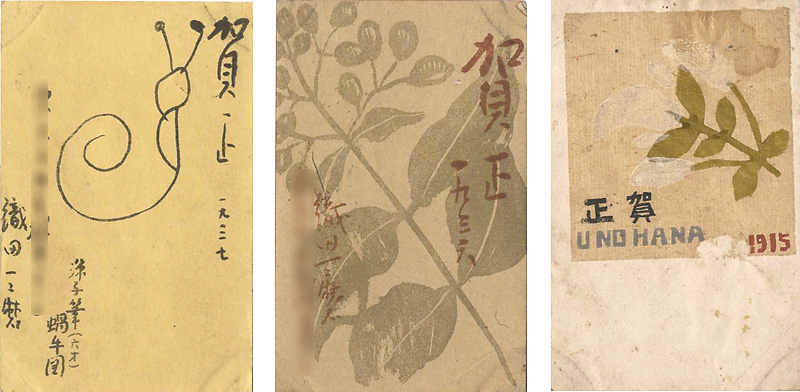 賀正
一九三七
子筆(六才)
蝸牛図
織田一磨
賀正
一九三六
織田一磨
賀正
UNOHANA
1915